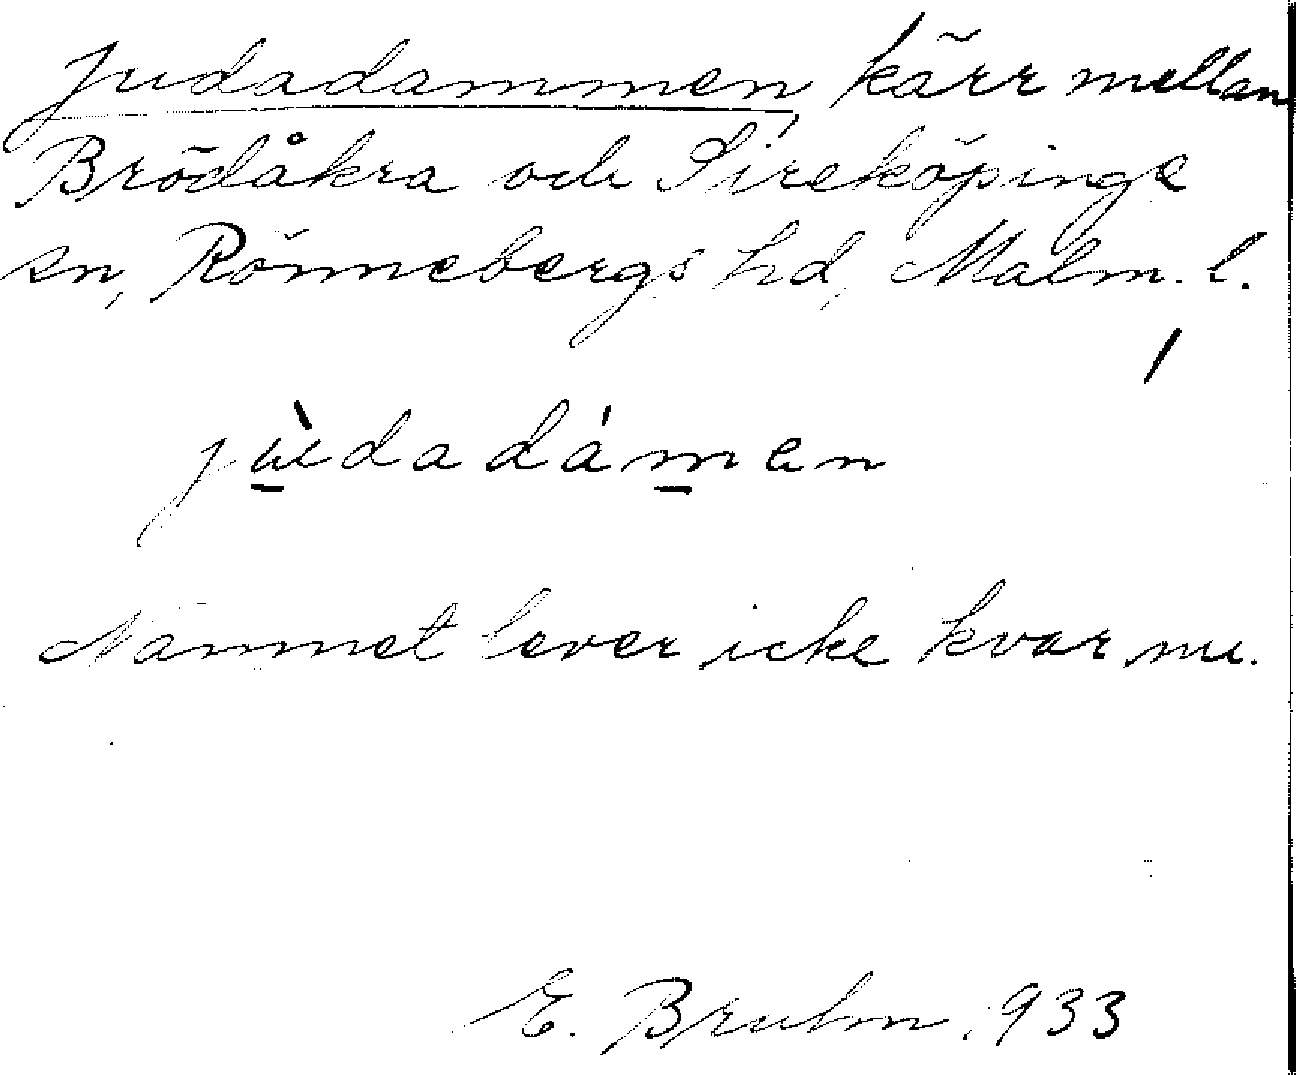 Judadammen, kärr mellan
Brödåkra och Sireköpinge
sn, Rönnebergs hd, Malm. l.
jùdadámen
Namnet lever icke kvar nu.
E. Bruhn. 933